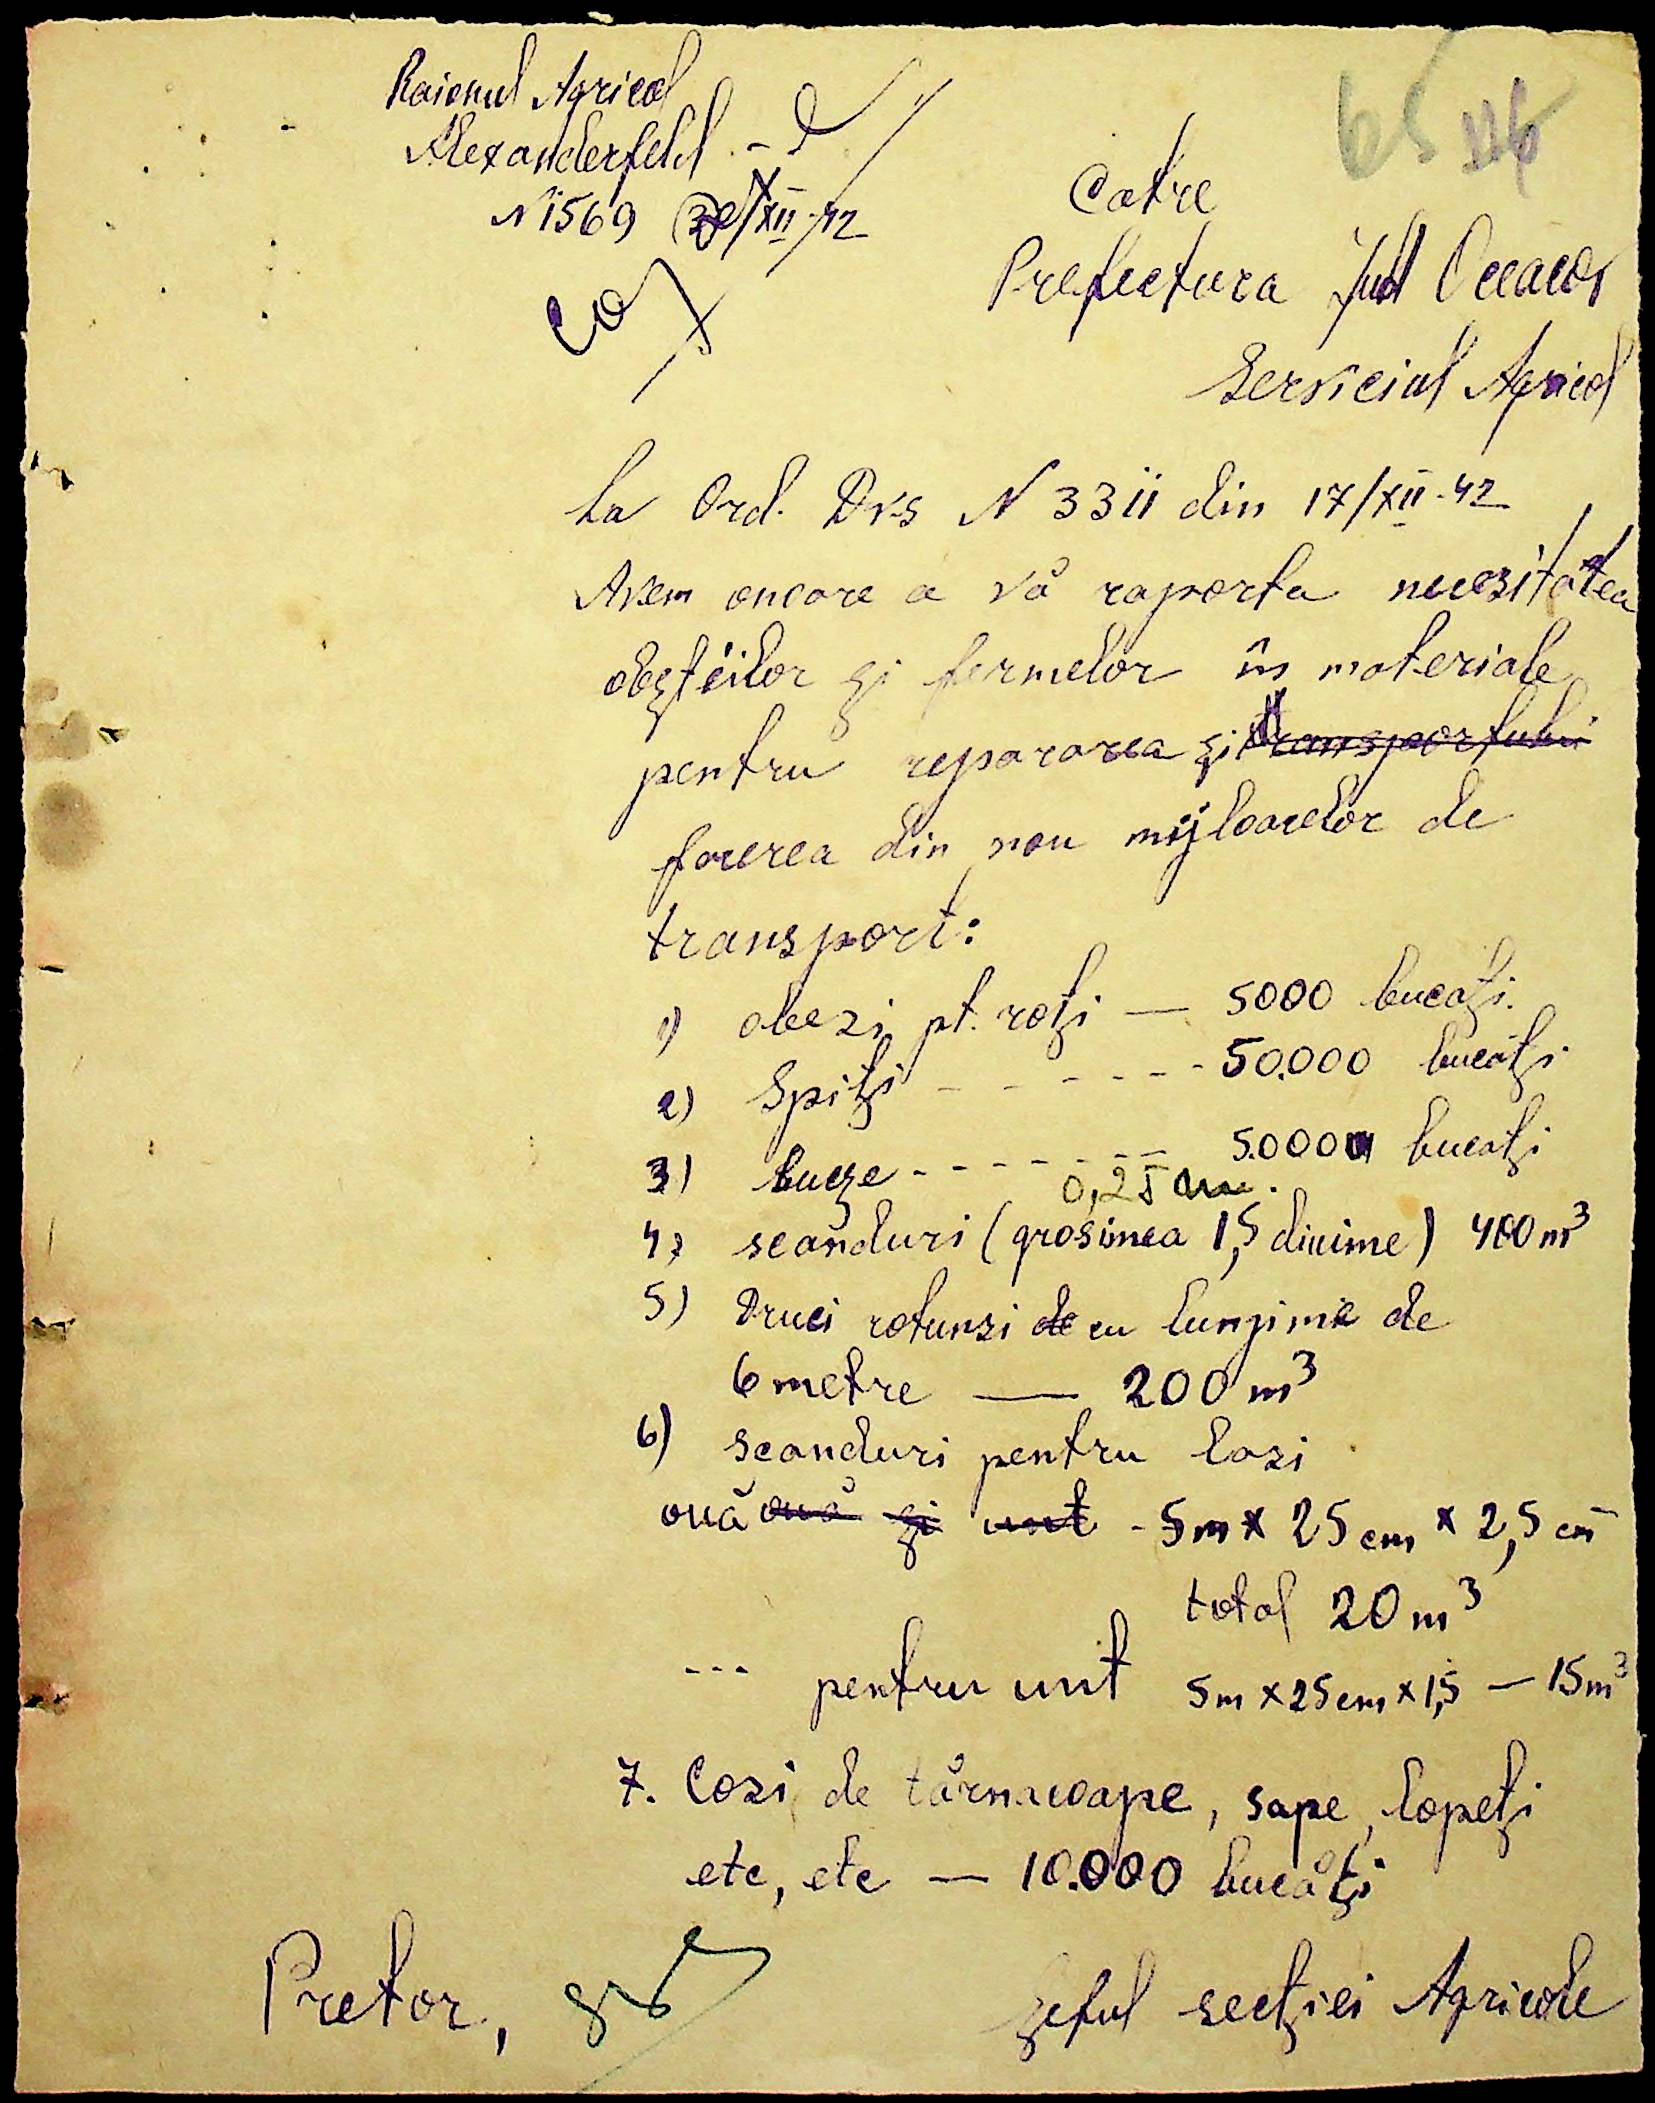 Raionul Agricol
Alexanderfeld
N 1569 /XII-42
65 116
Catre
Prefectura Jud Oceacov
Serviciul Agricol
La Ord. Dvs N 3311 din 17/XII-42
Avem onoare a vă raporta necesitatea
obștěilor și fermelor în materiale
pentru repararea și transportului
facerea din nou mijloacelor de
transport:
1) obezi pt. roți — 5000 bucăți.
2) Spiți - - - - - - - 50.000 bucăți
3) bucșe - - - - - - - 5.000 bucăți
0,25
4) scânduri (grosimea 1,5 diuime) 400 m³
5) Druci rotunzi de cu lungimie de
6 metre — 200 m³
6) Scanduri pentru lazi
ouă ouă și unt - 5m x 25 cm x 2,5 cm
total 20 m³
--- pentru unt 5m x 25cm x 1,5 — 15m³
7. Cozi de târnacoape, sape, lopeți
etc, etc — 10.000 bucăți
Pretor,
Șeful secției Agricole